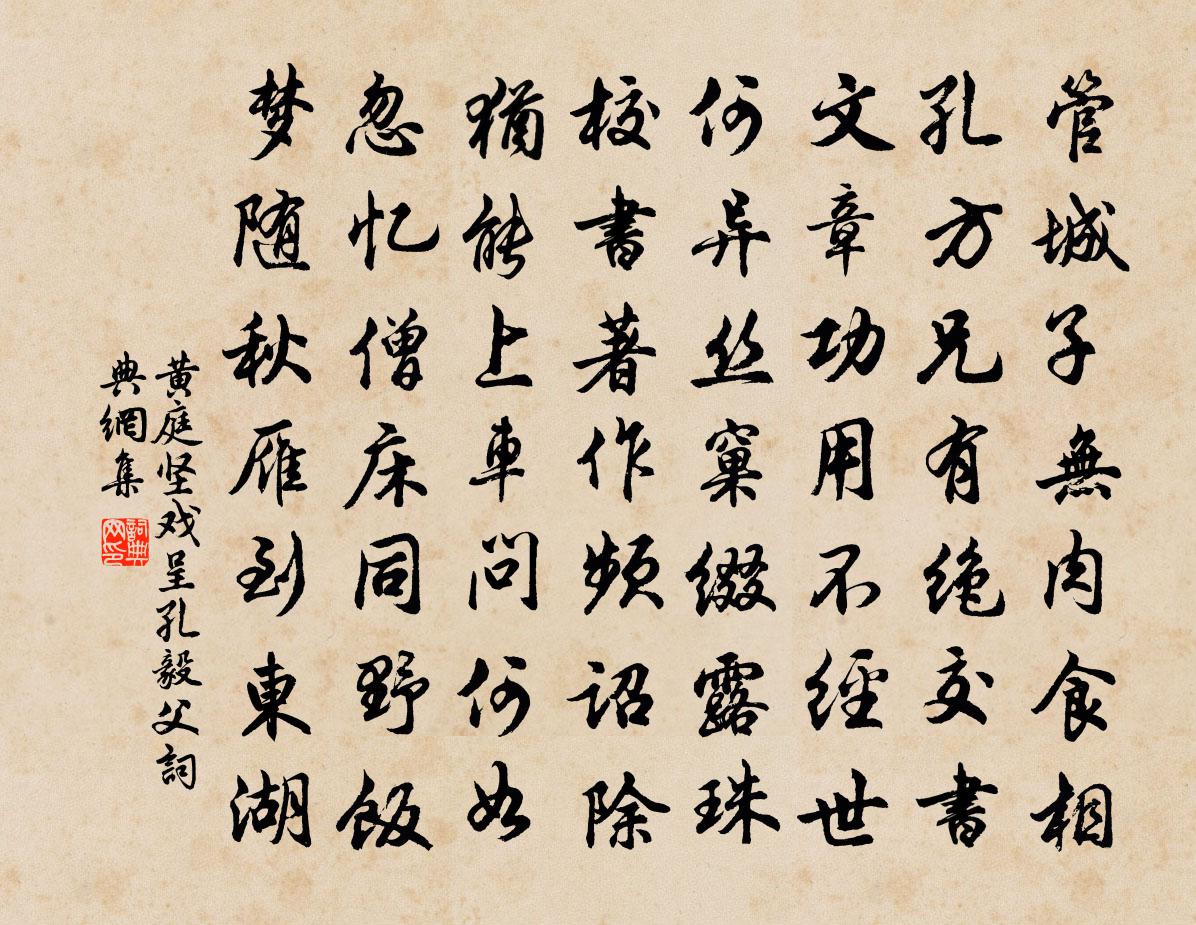 管城子無肉食相
孔方兄有绝交書
文章功用不經世
何异丝窠缀露珠
校書著作頻詔除
猶能上車問何如
忽忆僧床同野飯
梦随秋雁到東湖
黄庭坚戏呈孔毅父詞
典網集
詞典
网印